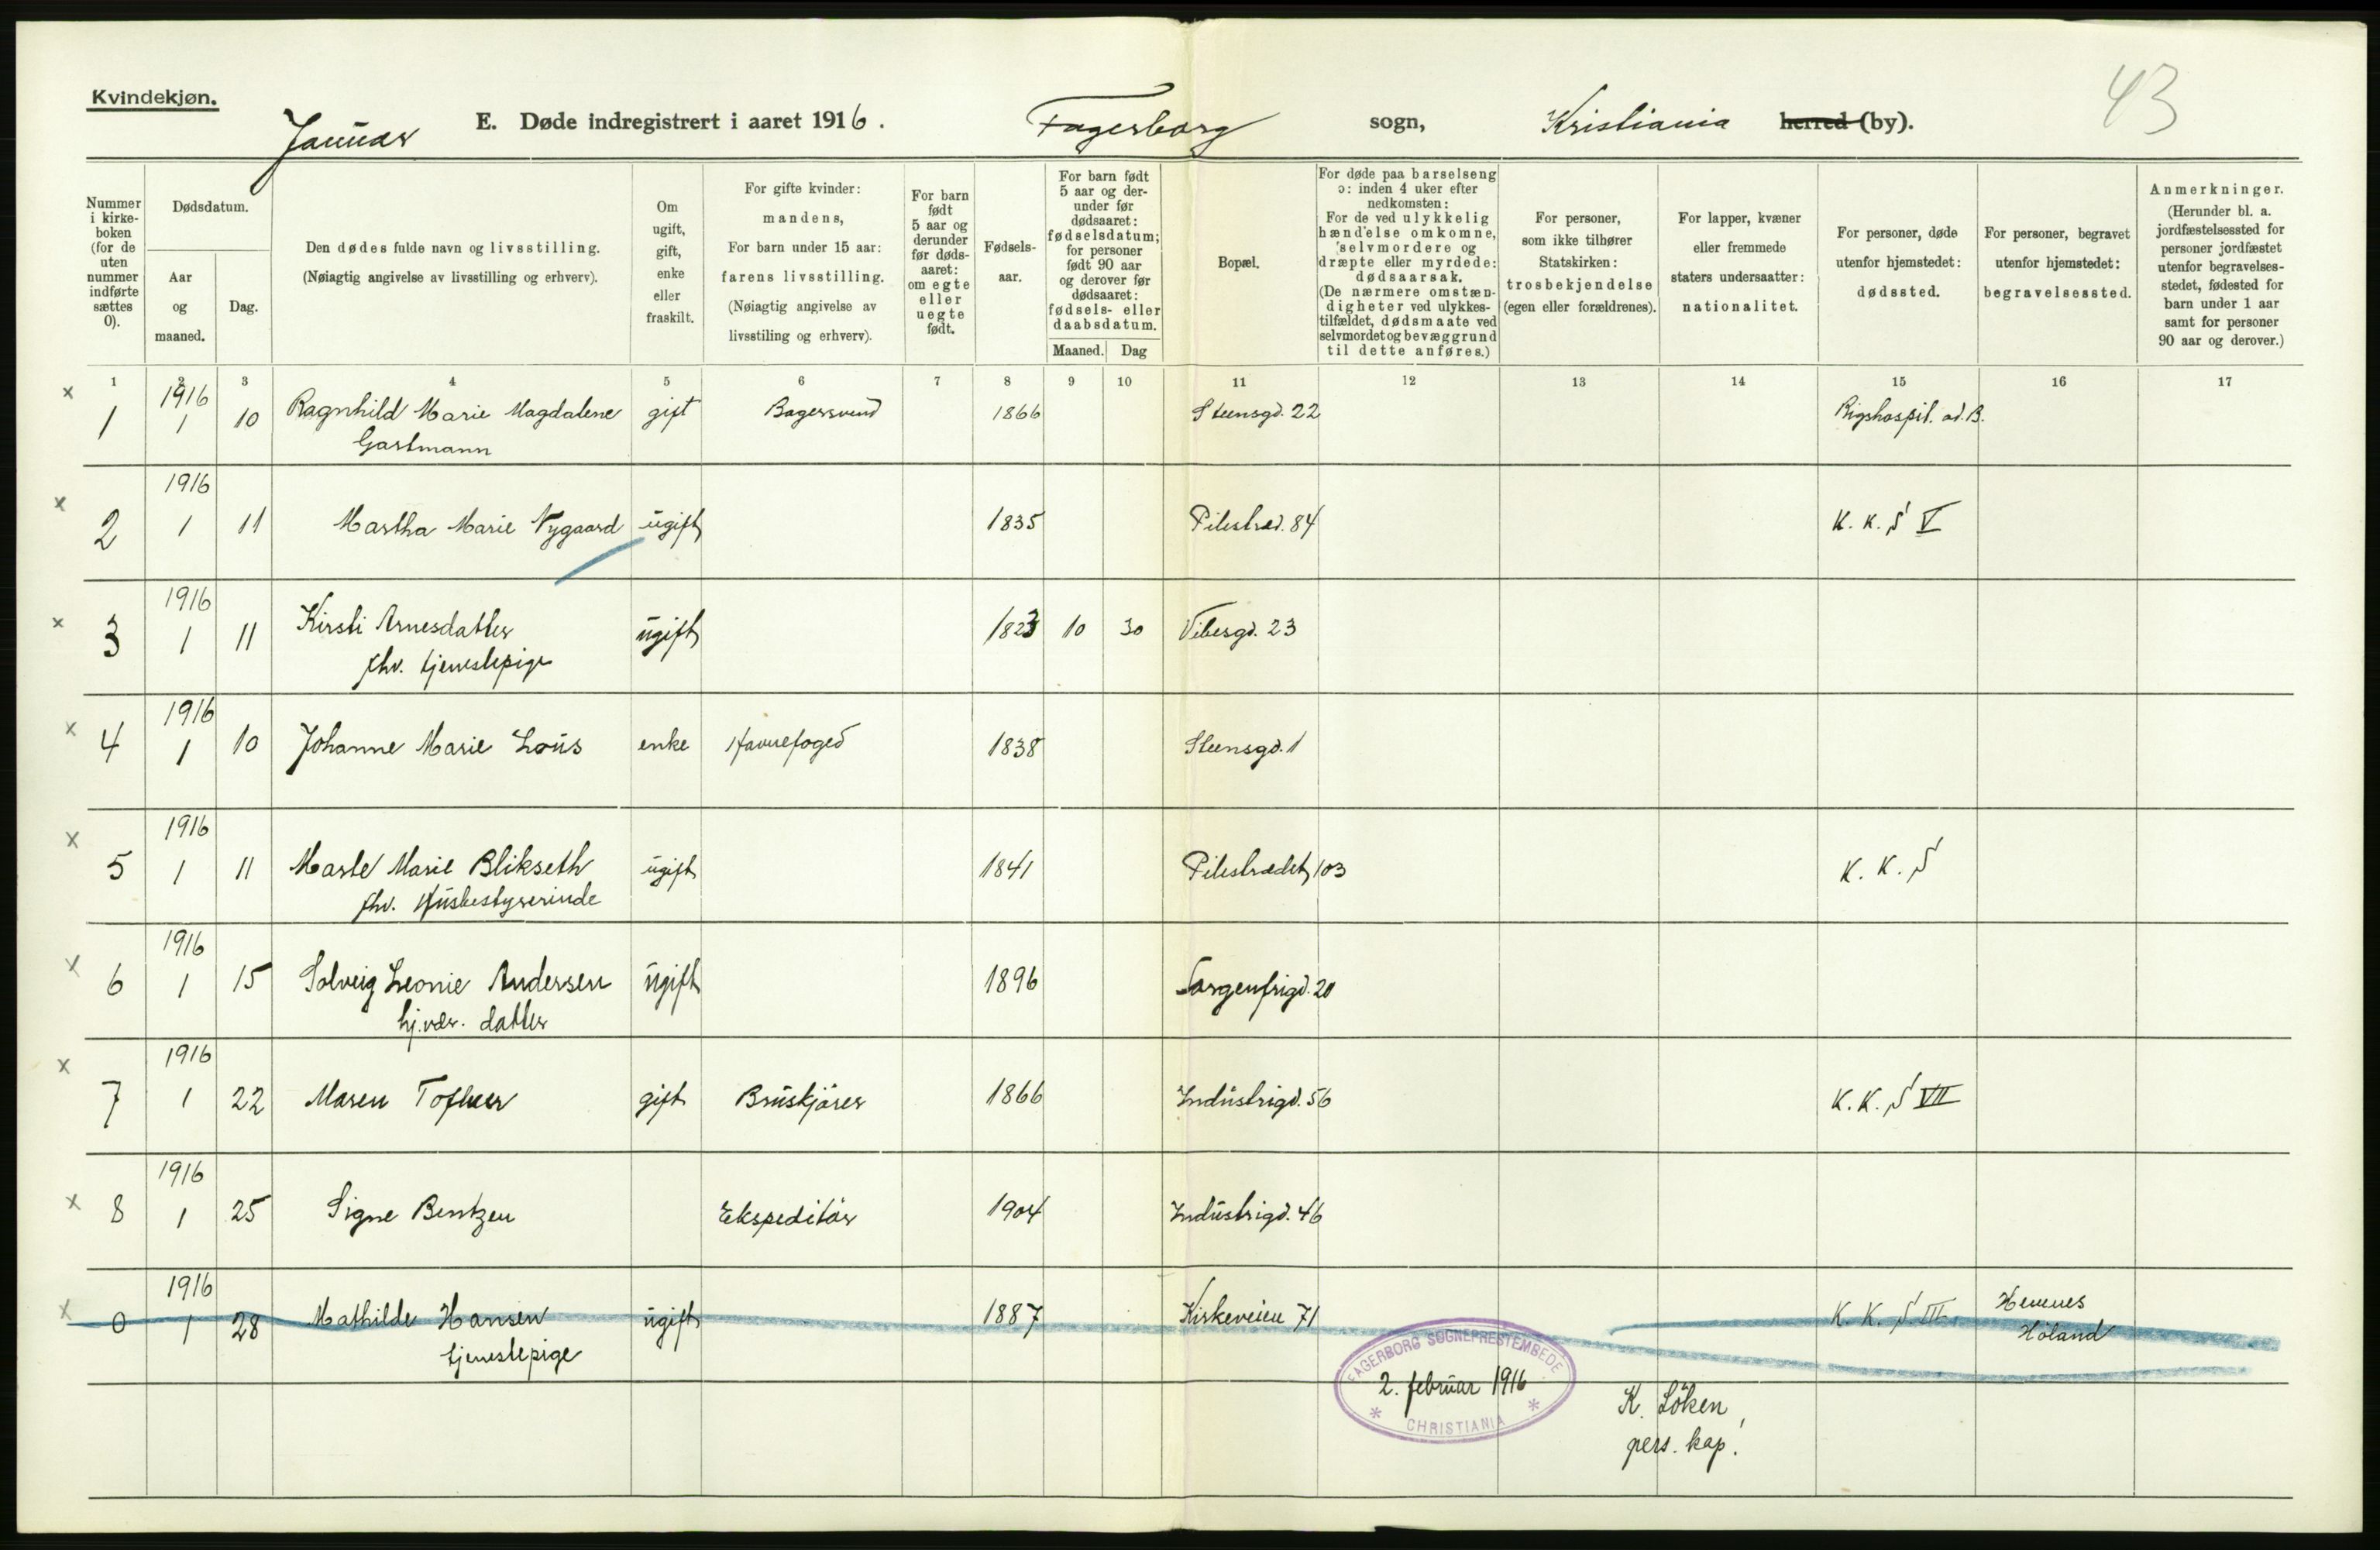 Kvindekjøn.
43
Januar E. Døde indregistrert i aaret 1916. Fagerborg sogn, Kristiania herred (by).
Nummer i kirke- boken (for de uten nummer indførte sættes 0).
Dødsdatum.
Aar og maaned.
Dag.
Den dødes fulde navn og livsstilling.
(Nøiagtig angivelse av livsstilling og erhverv).
Om ugift, gift, enke eller fraskilt.
For gifte kvinder: mandens,
For barn under 15 aar: farens livsstilling.
(Nøiagtig angivelse av livsstiling og erhverv).
For barn født 5 aar og derunder før døds- aaret: om egte eller uegte født.
Fødsels- aar.
For barn født 5 aar og der- under før dødsaaret: fødselsdatum; for personer født 90 aar og derover før dødsaaret: fødsels- eller daabsdatum.
Maaned. Dag
Bopæl.
For døde paa barselseng ɔ: inden 4 uker efter nedkomsten:
For de ved ulykkelig hændelse omkomne, selvmordere og dræpte eller myrdede: dødsaarsak.
(De nærmere omstæn- digheter ved ulykkes- tilfældet, dødsmaate ved selvmordet og bevæggrund til dette anføres.)
For personer, som ikke tilhører Statskirken: trosbekjendelse (egen eller forældrenes).
For lapper, kvæner eller fremmede staters undersaatter: nationalitet.
For personer, døde utenfor hjemstedet: dødssted.
For personer, begravet utenfor hjemstedet: begravelsessted.
Anmerkninger.
(Herunder bl. a. jordfæstelsessted for personer jordfæstet utenfor begravelses- stedet, fødested for barn under 1 aar samt for personer 90 aar og derover.)
1 2 3 4 5 6 7 8 9 10 11 12 13 14 15 16 17
x 1 1916 1 10 Ragnhild Marie Magdalene gift Bagersvend 1866 Steensgd. 22 Rigshospit. ad. B.
Gartmann
x 2 1916 1 11 Martha Marie Nygaard ugift 1835 Pilestræd. 84 K. K. S V
x 3 1916 1 11 Kirsti Arnesdatter ugift 1823 10 30 Vibesgd. 23
fhv. tjenestepige
x 4 1916 1 10 Johanne Marie Lous enke Havnefoged 1838 Steensgd. 1
x 5 1916 1 11 Marte Marie Blikseth ugift 1841 Pilestrædet 103 K. K. S
fhv. Husbestyrerinde
x 6 1916 1 15 Solveig Leonie Andersen ugift 1896 Sorgenfrigd. 20
hj.vær. datter
x 7 1916 1 22 Maren gift Bruskjører 1866 Industrigd. 56 K. K. S VII
x 8 1916 1 25 Signe Bentzen Ekspeditør 1904 Industrigd. 46
x 0 1916 1 28 Mathilde Hansen ugift 1887 Kirkeveien 71 K. K. S. III. Hemnes
tjenestepige Höland
FAGERBORG SOGNEPRESTEMBEDE
2. februar 1916
* CHRISTIANIA *
K. Löken,
pers. kap.